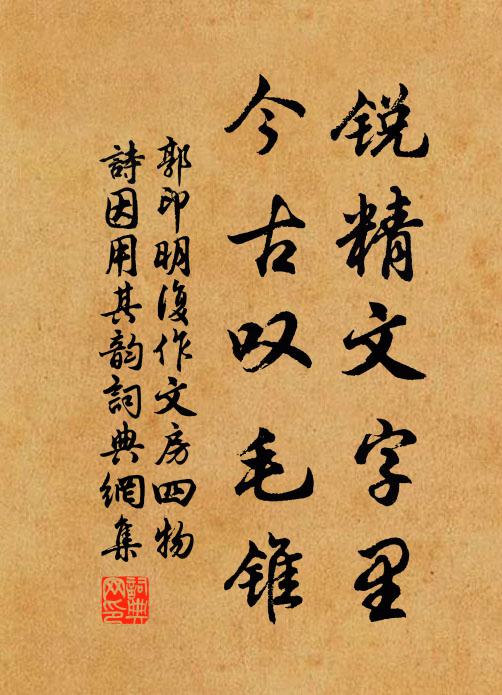 锐精文字里
今古叹毛锥
郭印明復作文房四物
詩因用其韵詞典網集
詞典网印